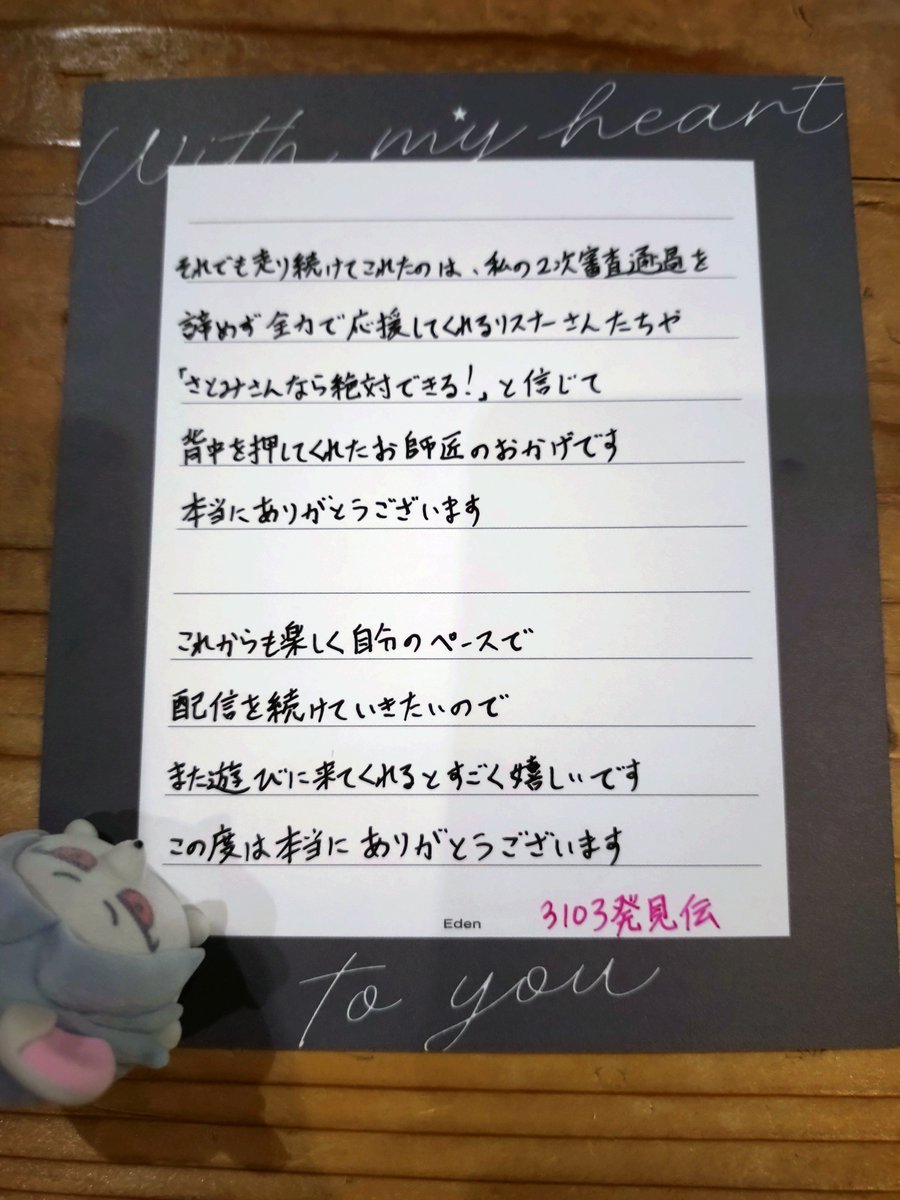 With my heart
それでも走り続けてこれたのは、私の2次審査通過を
諦めず全力で応援してくれるリスナーさんたちや
「さとみさんなら絶対できる!」と信じて
背中を押してくれたお師匠のおかげです
本当にありがとうございます
これからも楽しく自分のペースで
配信を続けていきたいので
また遊びに来てくれるとすごく嬉しいです
この度は本当にありがとうございます
Eden
3103発見伝
to you